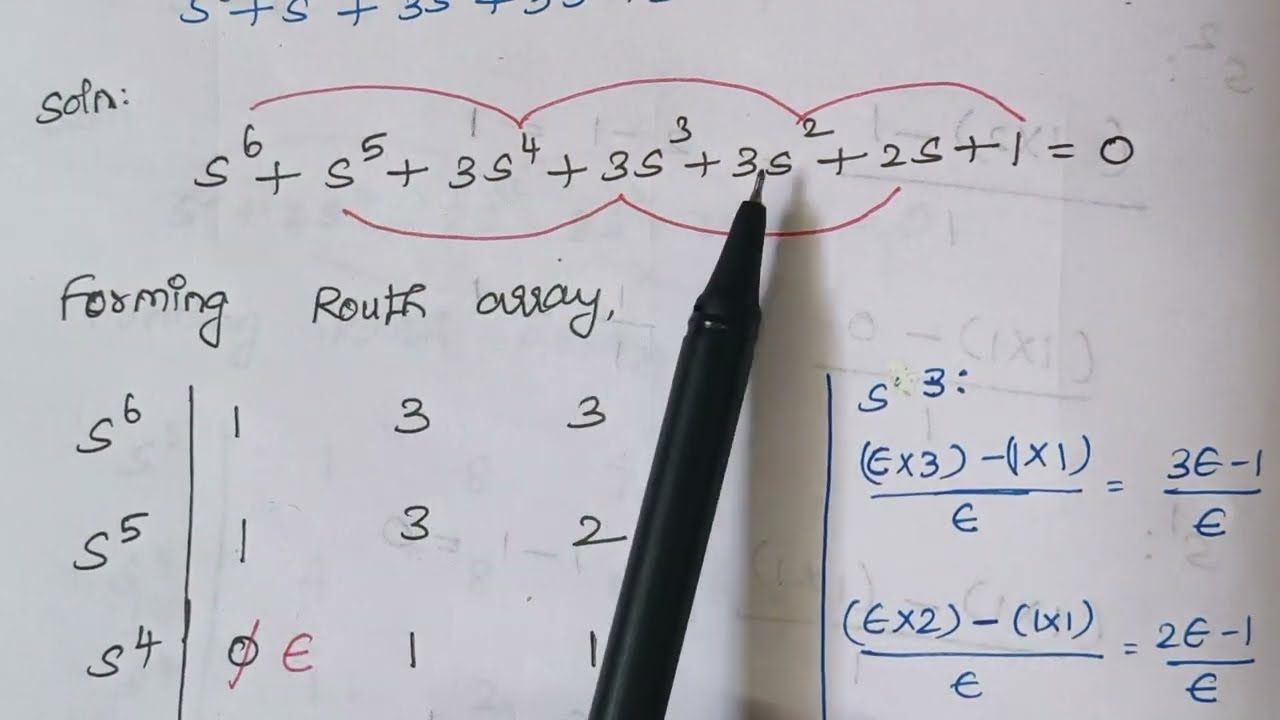 Soln:
s⁶ + s⁵ + 3s⁴ + 3s³ + 3s² + 2s + 1 = 0
Forming Routh array,
s⁶ | 1 3 3
s⁵ | 1 3 2
s⁴ | 0 ϵ 1 1
s³:
(ϵ×3) - (1×1) / ϵ = 3ϵ-1 / ϵ
(ϵ×2) - (1×1) / ϵ = 2ϵ-1 / ϵ